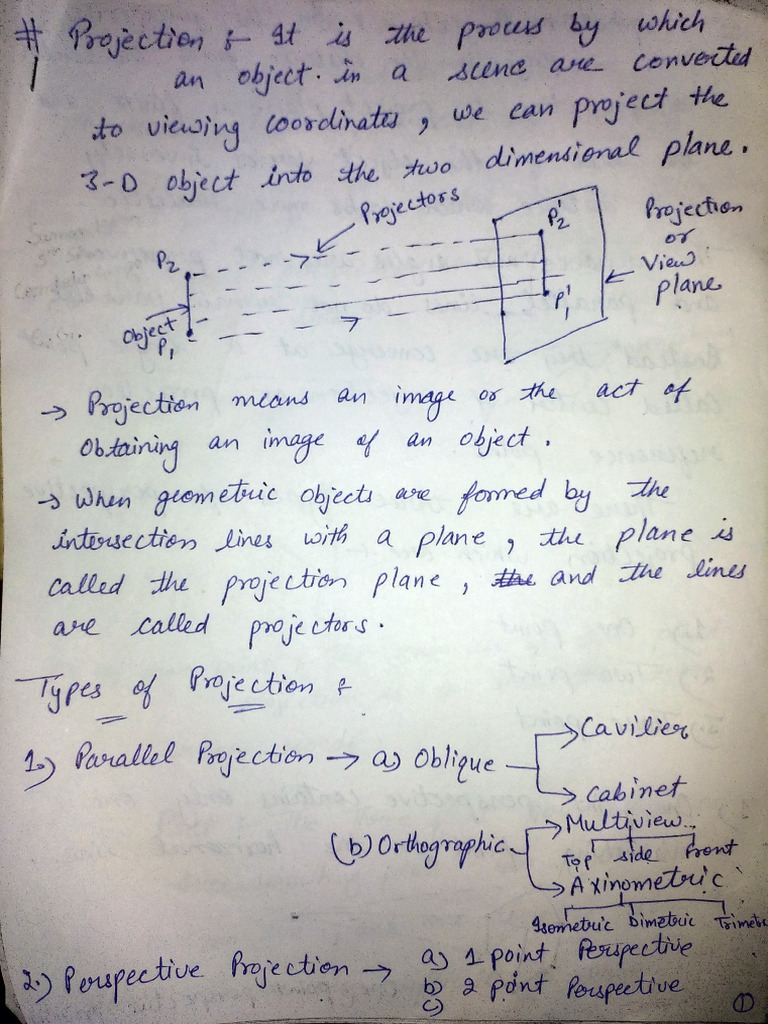 # Projection :- It is the process by which
1 an object. in a scene are converted
to viewing coordinates, we can project the
3-D object into the two dimensional plane.
Projectors
P2
Object
P1
P2'
P1'
Projection
or
View
plane
→ Projection means an image or the act of
Obtaining an image of an object.
→ When geometric objects are formed by the
intersection lines with a plane, the plane is
called the projection plane, the and the lines
are called projectors.
Types of Projection :-
1.) Parallel Projection → a) Oblique
Cavilier
Cabinet
(b) Orthographic
Multiview..
Top side Front
Axinometric
Isometric Dimetric Trimetric
2.) Perspective Projection → a) 1 point Perspective
b) 2 point Perspective
c)
1